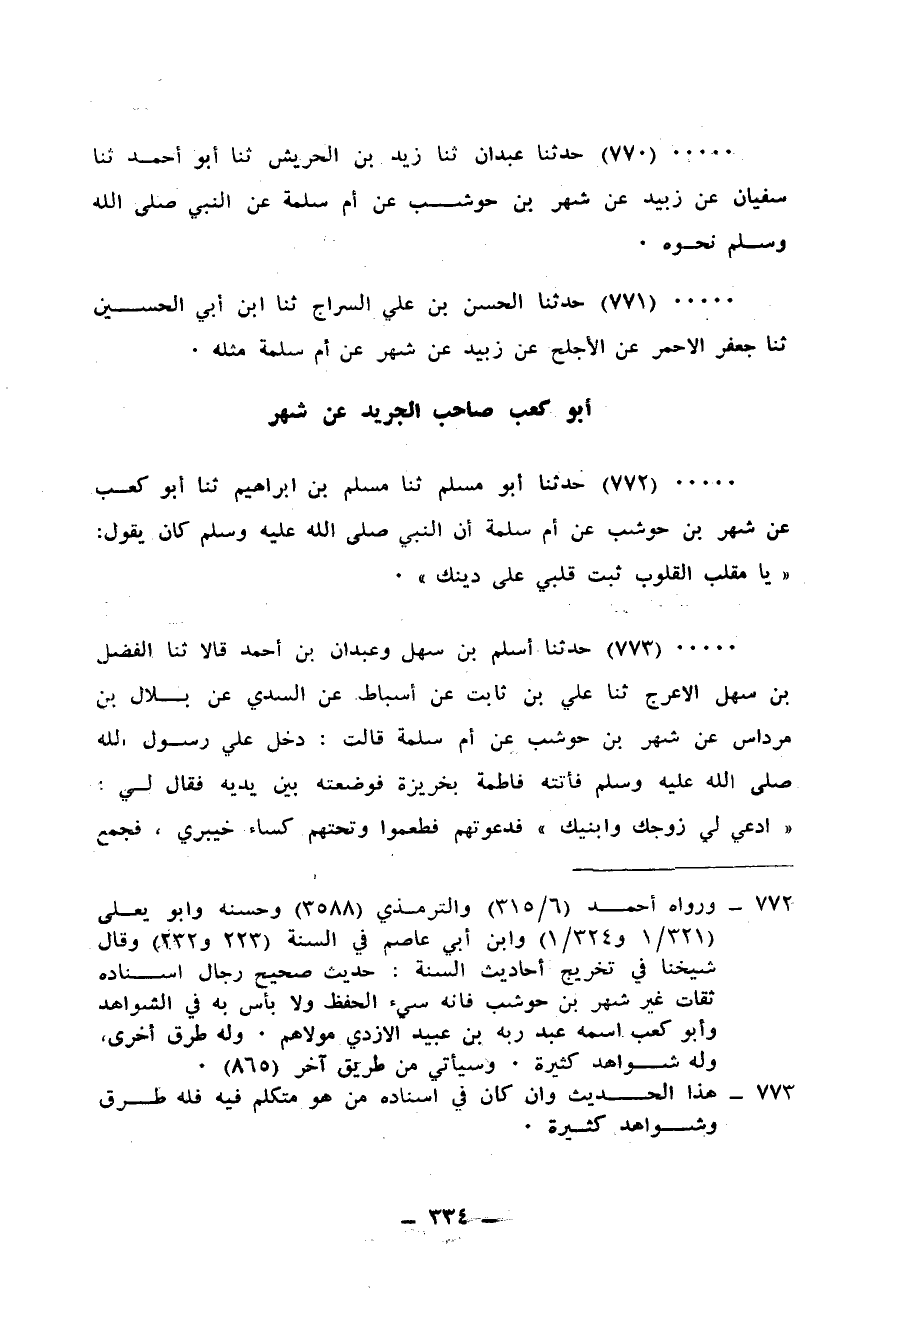 ٠٠٠٠٠ (٧٧٠) حدثنا عبدان ثنا زيد بن الحريش ثنا أبو أحمد ثنا
سفيان عن زبيد عن شهر بن حوشب عن أم سلمة عن النبي صلى الله
وسلم نحوه ٠
٠٠٠٠٠ (٧٧١) حدثنا الحسن بن علي السراج ثنا ابن أبي الحسين
ثنا جعفر الاحمر عن الأجلح عن زبيد عن شهر عن أم سلمة مثله ٠
أبو كعب صاحب الجريد عن شهر
٠٠٠٠٠ (٧٧٢) حدثنا أبو مسلم ثنا مسلم بن ابراهيم ثنا أبو كعب
عن شهر بن حوشب عن أم سلمة أن النبي صلى الله عليه وسلم كان يقول:
« يا مقلب القلوب ثبت قلبي على دينك » ٠
٠٠٠٠٠ (٧٧٣) حدثنا أسلم بن سهل وعبدان بن أحمد قالا ثنا الفضل
بن سهل الاعرج ثنا علي بن ثابت عن أسباط عن السدي عن بلال بن
مرداس عن شهر بن حوشب عن أم سلمة قالت : دخل علي رسول الله
صلى الله عليه وسلم فأتته فاطمة بخريزة فوضعته بين يديه فقال لي :
« ادعي لي زوجك وابنيك » فدعوتهم فطعموا وتحتهم كساء خيبري ، فجمع
٧٧٢ ــ ورواه أحمد (٣١٥/٦) والترمذي (٣٥٨٨) وحسنه وابو يعلى
(١/٣٢١ و١/٣٢٤) وابن أبي عاصم في السنة (٢٢٣ و٢٣٢) وقال
شيخنا في تخريج أحاديث السنة : حديث صحيح رجال اسناده
ثقات غير شهر بن حوشب فانه سيء الحفظ ولا بأس به في الشواهد
وأبو كعب اسمه عبد ربه بن عبيد الازدي مولاهم ٠ وله طرق أخرى،
وله شواهد كثيرة ٠ وسيأتي من طريق آخر (٨٦٥) ٠
٧٧٣ ــ هذا الحديث وان كان في اسناده من هو متكلم فيه فله طرق
وشواهد كثيرة ٠
ــ ٣٣٤ ــ